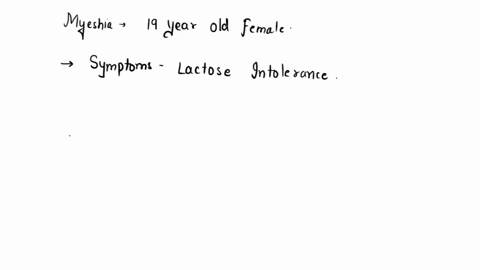 Myeshia → 19 year old female.
→ Symptoms - Lactose Intolerance.